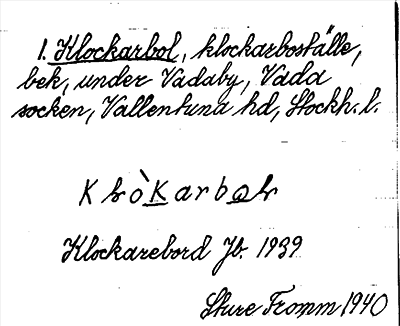 1. Klockarbol, klockarboställe,
bek, under Vadaby, Vada
socken, Vallentuna hd, Stockh. l.
Klockarebord Jb. 1939
Sture Fromm 1940